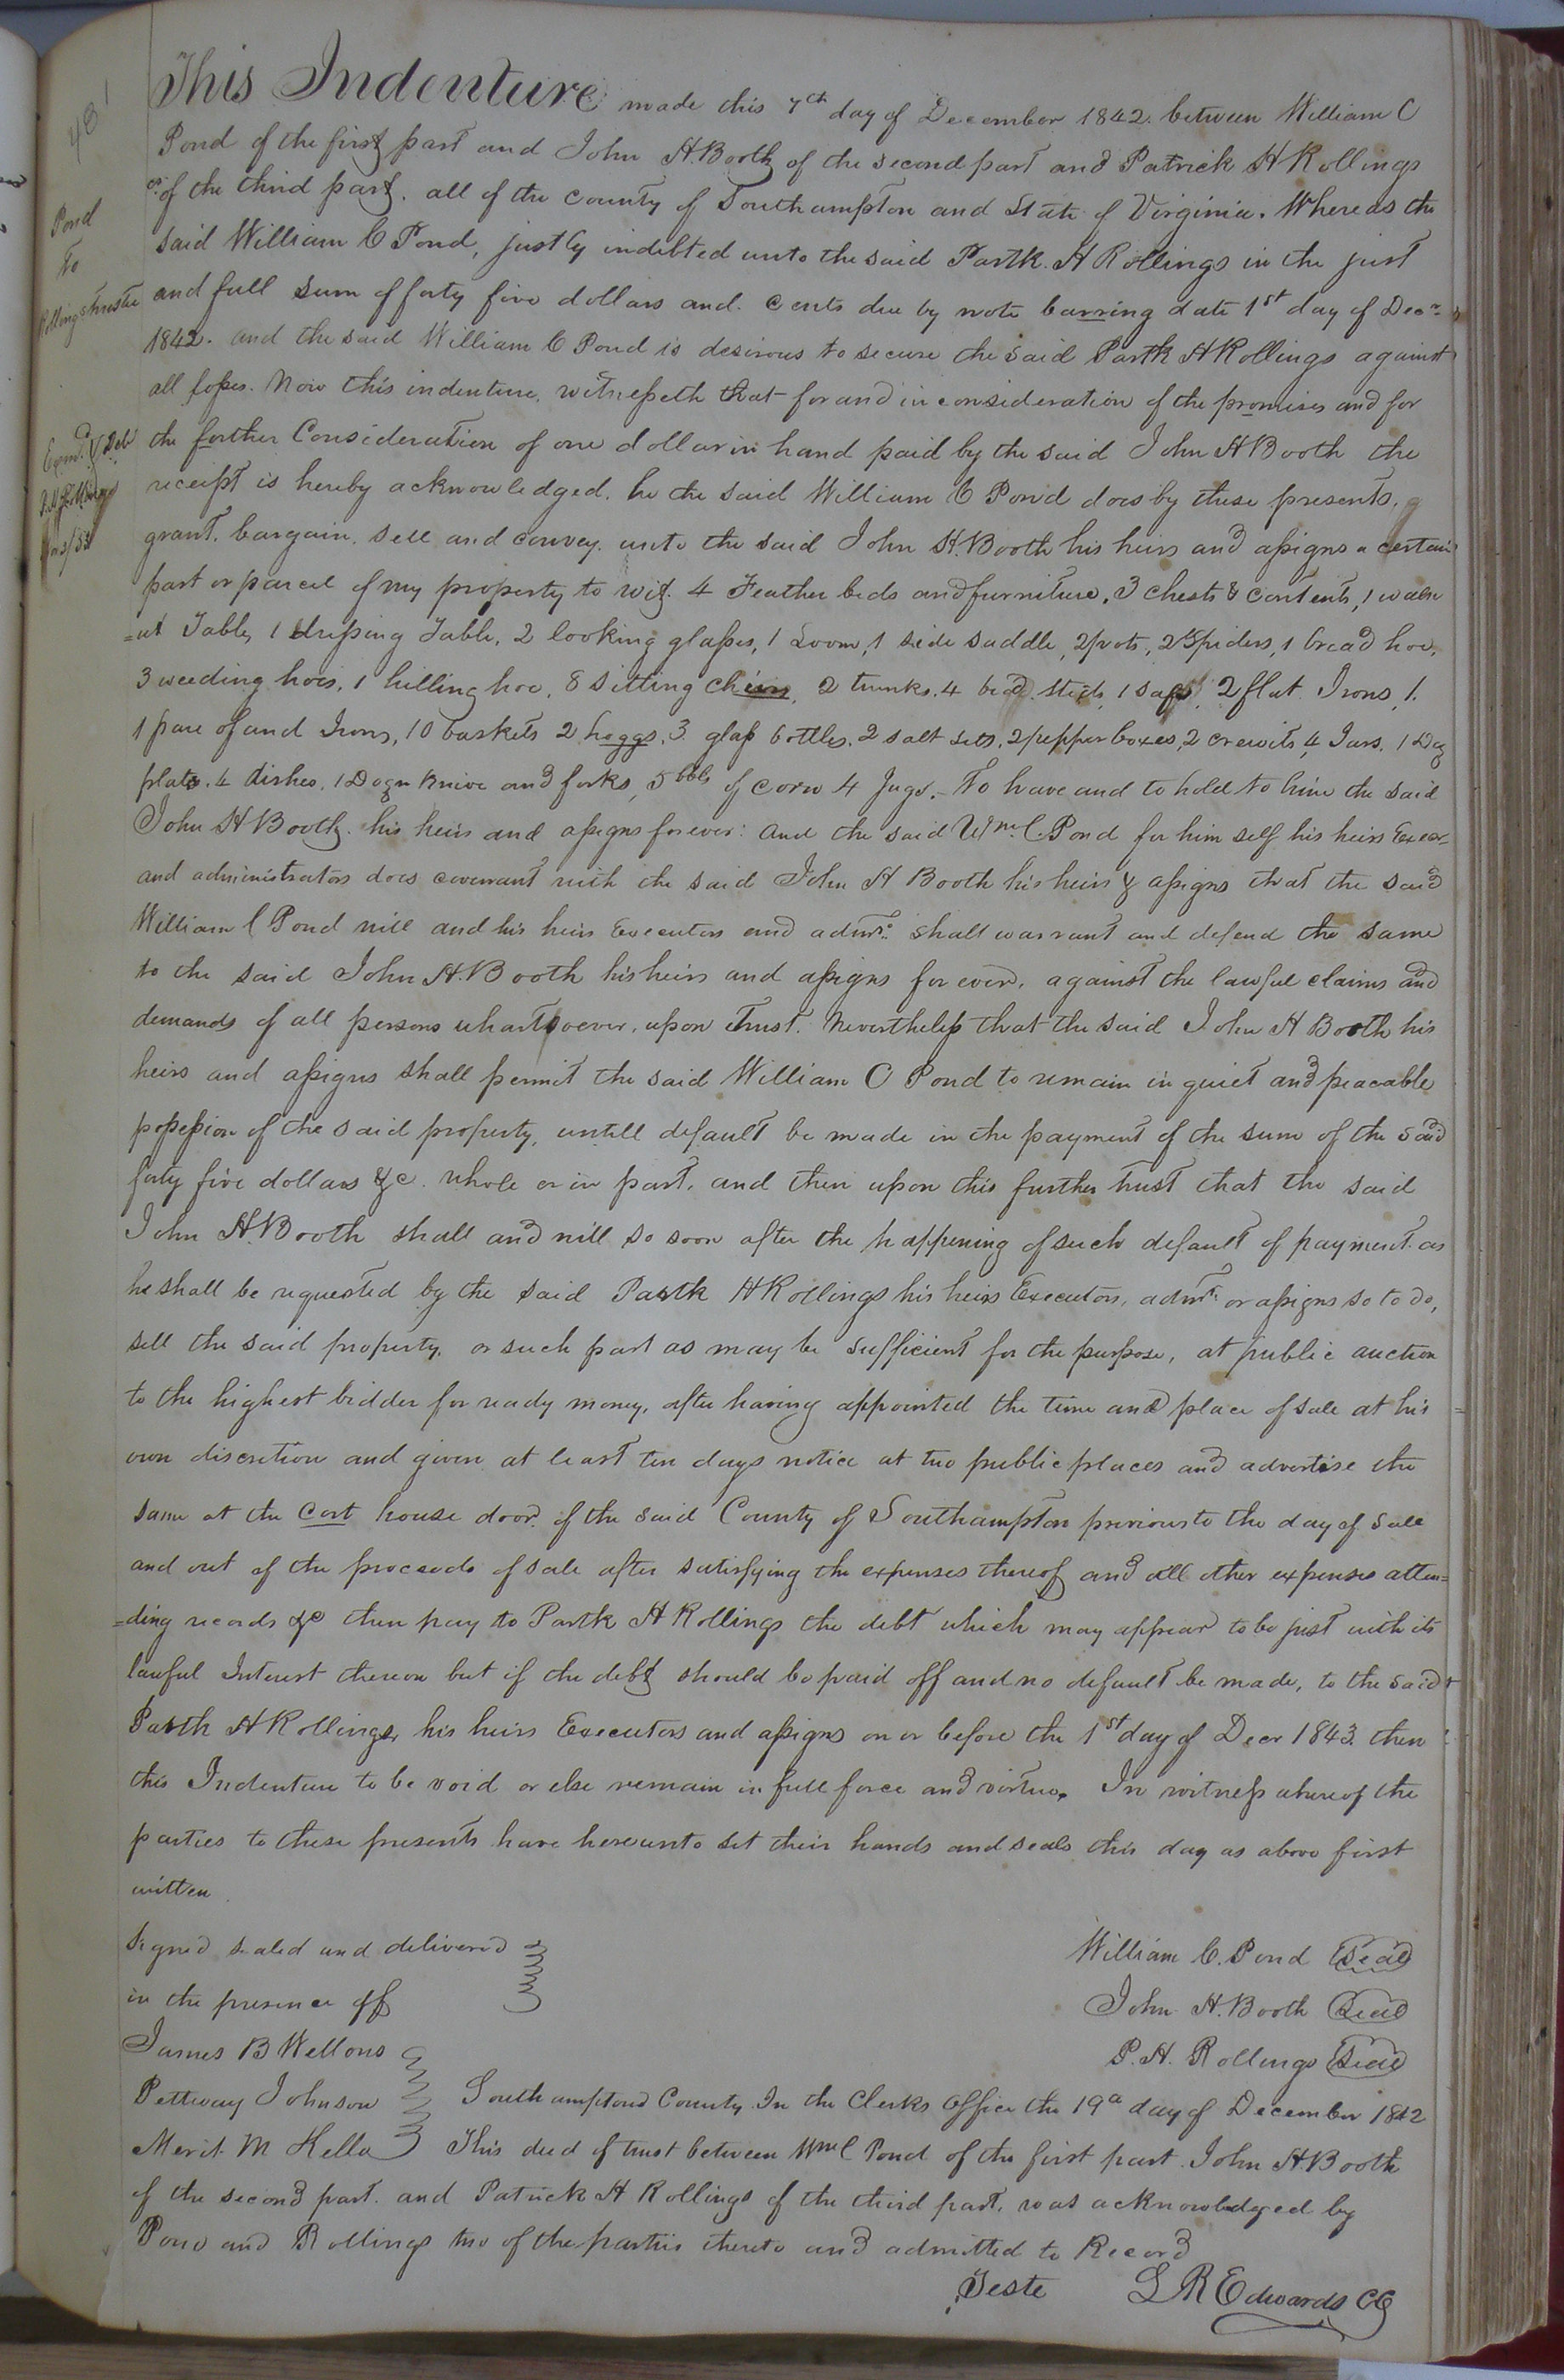 481
This Indenture made this 7th day of December 1842. between William C
Pond of the first part and John H. Booth of the second part and Patrick H Rollings
of the third part. all of the county of Southampton and State of Virginia. Whereas the
said William C Pond, justly indebted unto the said Partk. H Rollings in the just
and full sum of forty five dollars and. cents due by note barring date 1st day of Decr.
1842. and the said William C Pond is desirous to secure the said Partk H Rollings against
all losses. Now this indenture, witnesseth that for and in consideration of the promises and for
the forther Consideration of one dollar in hand paid by the said John H Booth the
receipt is hereby acknowledged. he the said William C Pond does by these presents,
grant, bargain, sell and convey. unto the said John H. Booth his heirs and assigns a certain
part or parcel of my property to wit. 4 Feather beds and furniture, 3 chests & contents, 1 waln
=ut Table, 1 dressing Table, 2 looking glasses, 1 Loom, 1 side saddle, 2 pots, 2 Spiders, 1 bread hoe,
3 weeding hoes, 1 hilling hoe, 8 sitting cheirs, 2 trunks, 4 bead steds, 1 safs, 2 flat Irons, 1.
1 pare of and Irons, 10 baskets 2 hoggs, 3 glass bottles, 2 salt sets, 2 pepper boxes, 2 crewits, 4 Jars, 1 Doz
plats. 4 dishes, 1 Dozn Knive and forks, 5 bbls of corn 4 Jugs. To have and to hold to him the said
John H Booth. his heirs and assigns forever: and the said Wm. C. Pond for him self his heirs Execr
and administrators does covenant with the said John H Booth his heirs & assigns that the said
William C Pond will and his heirs Executors and admrs. shall warrant and defend the same
to the said John H. Booth his heirs and assigns for ever, against the lawful claims and
demands of all persons whartsoever, upon Trust. Nevertheless that the said John H Booth his
heirs and assigns shall permit the said William C Pond to remain in quiet and peacable
possession of the said property, untill default be made in the payment of the sum of the said
forty five dollars &c. whole or in part, and then upon this further trust that the said
John H. Booth shall and will so soon after the happening of such default of payment. as
he shall be requested by the said Partk H Rollings his heirs Executors, admrs. or assigns so to do,
sell the said property. or such part as may be sufficient for the purpose, at public auction
to the highest bidder for ready money, after having appointed the time and place of sale at his
own discretion and given at least ten days notice at two public places and advertise the
same at the Cort house door of the said County of Southampton previous to the day of sale
and out of the proceeds of sale after satisfying the expenses thereof and all other expenses atten=
=ding records &c then pay to Partk H Rollings the debt which may appear to be just with its
lawful Interest thereon but if the debt should be paid off and no default be made, to the said
Partk H Rollings, his heirs Executors and assigns on or before the 1st day of Decr 1843. then
this Indenture to be void or else remain in full force and virtue. In witness whereof the
parties to these presents have hereunto set their hands and seals this day as above first
written.
Signed sealed and delivered
in the presence off
William C. Pond Seal
John H. Booth Seal
P. H. Rollings Seal
James B Wellons
Pettway Johnson
Merit M Hella
Southampton County In the Clerks Office the 19th day of December 1842
This deed of trust between Wm C Pond of the first part. John H Booth
of the second part. and Patrick H Rollings of the third part. was acknowledged by
Pond and Rollings two of the parties thereto and admitted to Record
Teste L R Edwards CC
Pond
to
Rollings trustee
Exmd. & Deld